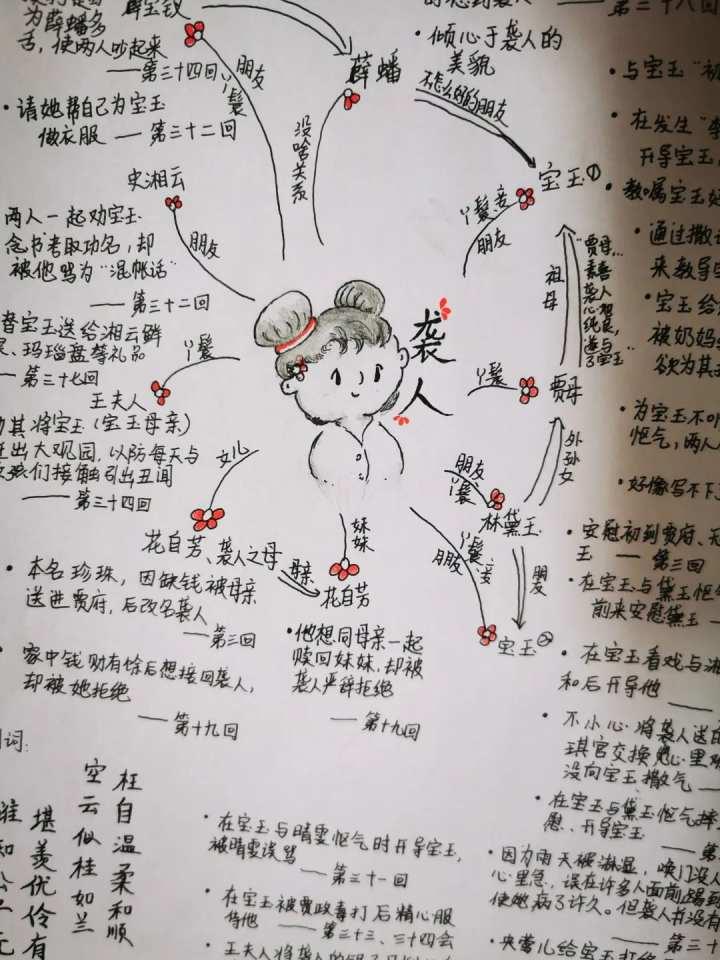 为薛蟠多
舌，使两人吵起来
——第三十四回
朋友
丫鬟
没啥关系
薛蟠
·倾心于袭人的
美貌
不怎么好的朋友
——第二十八回
·请她帮自己为宝玉
做衣服——第三十二回
史湘云
朋友
两人一起劝宝玉
念书考取功名，却
被他骂为“混帐话”
——第三十二回
替宝玉送给湘云鲜
玛瑙盘等礼品
——第三十七回
丫鬟
王夫人
其将宝玉（宝玉母亲）
出大观园，以防每天与
孩们接触引出丑闻
——第三十四回
女儿
花自芳、袭人之母
母亲
妹妹
花自芳
·本名珍珠，因缺钱被母亲
送进贾府，后改名袭人
——第三回
·家中钱财有馀后想接回袭人，
却被她拒绝
——第十九回
·他想同母亲一起
赎回妹妹，却被
袭人严辞拒绝
——第十九回
袭人
宝玉①
丫鬟、妾
朋友
祖母
“贾母…
素喜
袭人
心地
纯良，
遂与
了宝玉”
丫鬟
贾母
外孙女
朋友
丫鬟
林黛玉
朋友
丫鬟、妾
朋友
宝玉②
·与宝玉“初
·在发生“
开导宝玉
·教嘱宝玉好
·通过撒
来教导
·宝玉给
被奶妈
欲为其
·为宝玉不
怄气，两人
·好像写不下
·安慰初到贾府、
玉——第三回
·在宝玉与黛玉怄气
前来安慰黛玉——
·在宝玉看戏与湘
和后开导他——
·不小心将袭人送的
琪官交换，她心里难
没向宝玉撒气——
·在宝玉与黛玉怄气摔
慰、开导宝玉
——第
·因为雨天被淋湿，唤门没人
心里急，误在许多人面前踢到
使她病了许久。但袭人并没有
——第三十
枉自温柔和顺
空云似桂如兰
堪羡优伶有
谁知公子无
·在宝玉与晴雯怄气时开导宝玉，
被晴雯误骂
——第三十一回
·在宝玉被贾政毒打后精心服
侍他——第三十三、三十四会